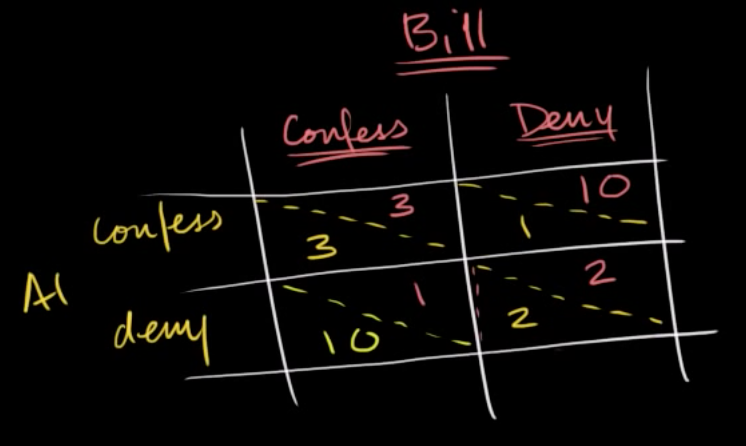 Bill
Confess Deny
confess 3 3 10 1
Al
deny 1 10 2 2